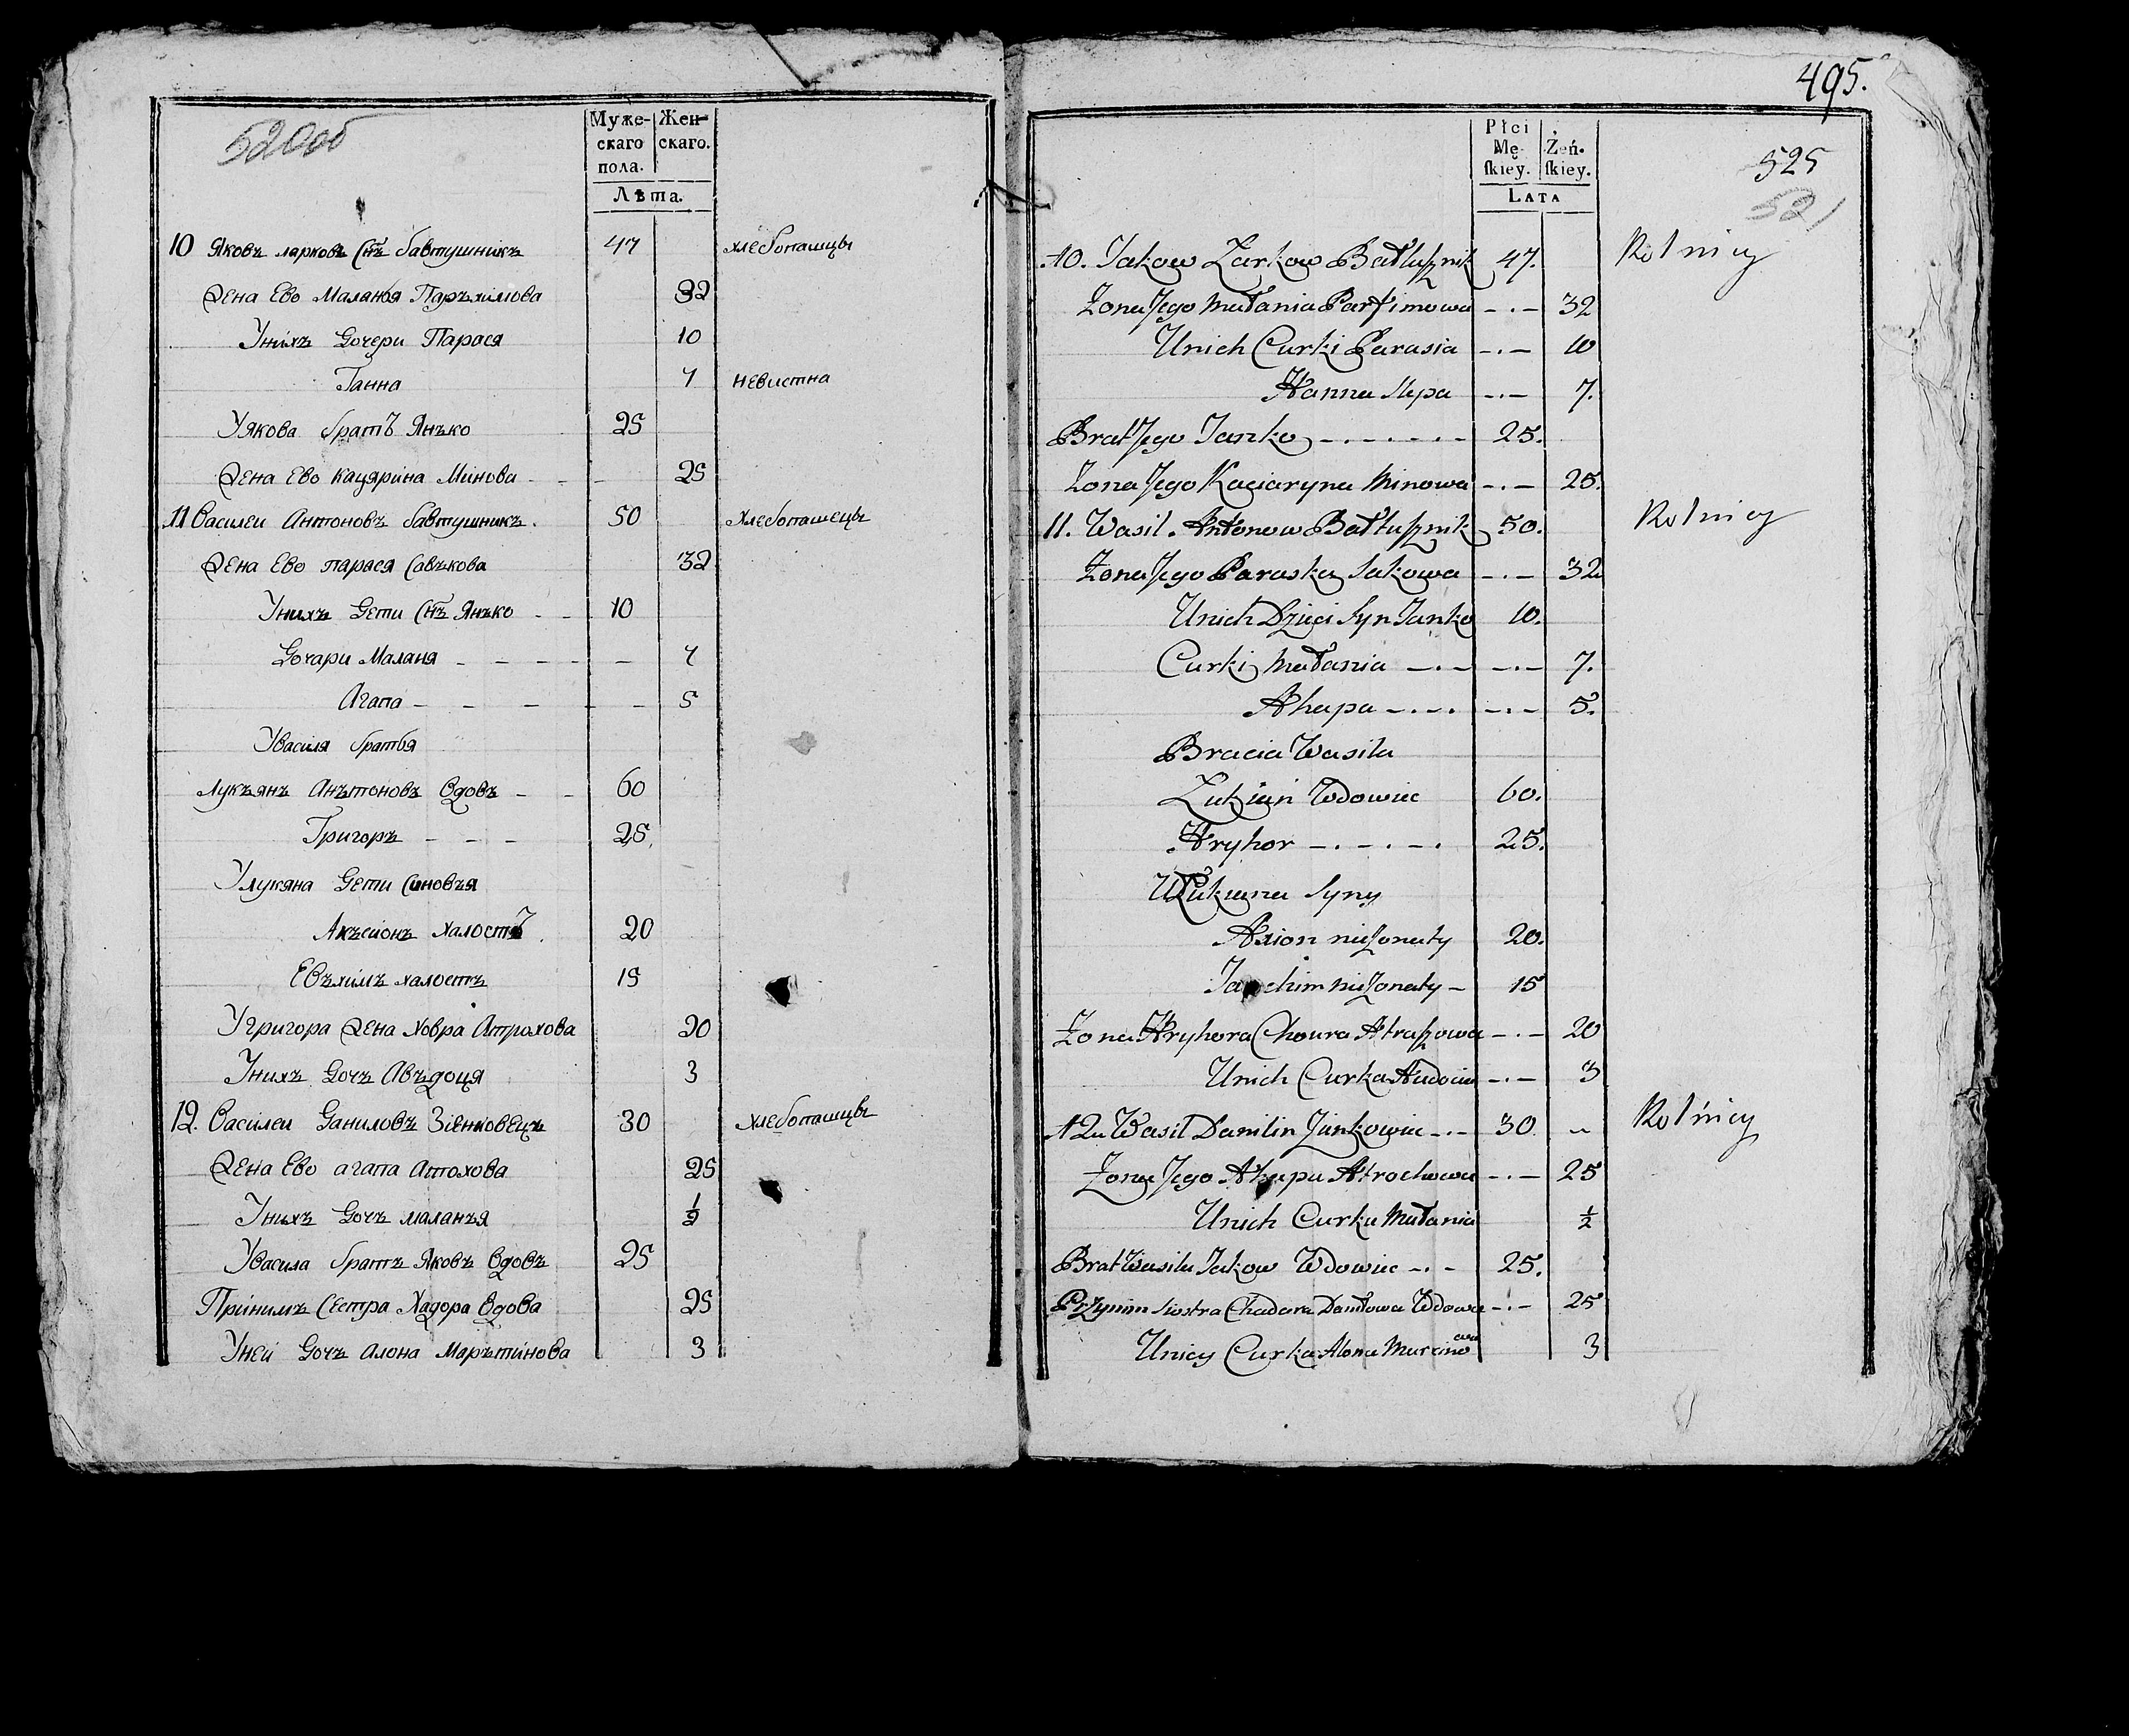 520об
Муже-
скаго
пола.
Жен-
скаго.
Лѣта.
10 Яковъ ларковъ Снъ бавтушникъ 47 хлебопашцы
Жена Ево Маланья Паръхимова 32
Унихъ Дочери Парася 10
Ганна 7 невистна
Уякова братъ Янъко 25
Жена Ево Кацярина Минова - - - 25
11 Василеи Антоновъ бавтушникъ. 50 Хлебопашецы
Жена Ево парася Савъкова 32
Унихъ Дети Снъ Янъко - - 10
Дочари Маланя - - - - - 7
Агапа - - - - - 5
Увасиля братья
Лукъянъ Анътоновъ Вдовъ - - 60
Григоръ - - - 25.
Улукяна Дети Синовъя
Акъсіонъ Халостъ. 20
Евъхимъ халостъ 15
Угригора Жена Ховра Атрахова 20
Унихъ Дочъ Авъдоця 3
12. Василеи Даниловъ Зіенковецъ 30 хлебопашцы
Жена Ево агапа Атохова 25
Унихъ Дочъ маланъя ½
Увасила братъ Яковъ Вдовъ 25
Принимъ Сестра Хадора Вдова 25
Уней Дочъ Алона Марътинова 3
495.
Płci
Mę-
ſkiey.
Żeń-
ſkiey.
LATA
525
521
10. Jakow Larkow Bałtuſznik 47. Rolnicy
Żona Jego Małania Parfimowa -.- 32
Unich Curki Parasia -.- 10
Hanna Slepa -.- 7.
Brat Jego Janko -.-.-.- 25.
Żona Jego Kaciaryna Minowa -.- 25.
11. Wasil. Antonow Bałtuſznik 50. Rolnicy
Żona Jego Paraska Sakowa -.- 32
Unich Dzieci Syn Janko 10.
Curki Małania -.- -.- 7.
Ahapa -.-. -.- 5.
Bracia Wasila
Łukjan Wdowiec 60.
Hryhor -.-.-. 25.
U Łukiana Syny
Axion nieżonaty 20.
Jauchim nieżonaty - 15
Żona Hryhora Choura Atraſzowa -.- 20
Unich Curka Audocia -.- 3
12 Wasil Danilin Zinkowiec -.- 30. Rolnicy
Żona Jego Ahapa Atrochowa -.- 25
Unich Curka Małania ½
Brat Wasila Jakow Wdowiec -.- 25.
Przynim siostra Chadora Daniłowa Wdowa -.- 25
Unicy Curka Alona Marcinowa 3